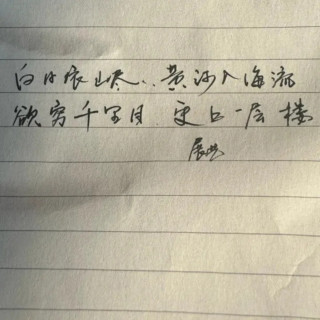 白日依山尽,黄河入海流
欲穷千里目,更上一层楼